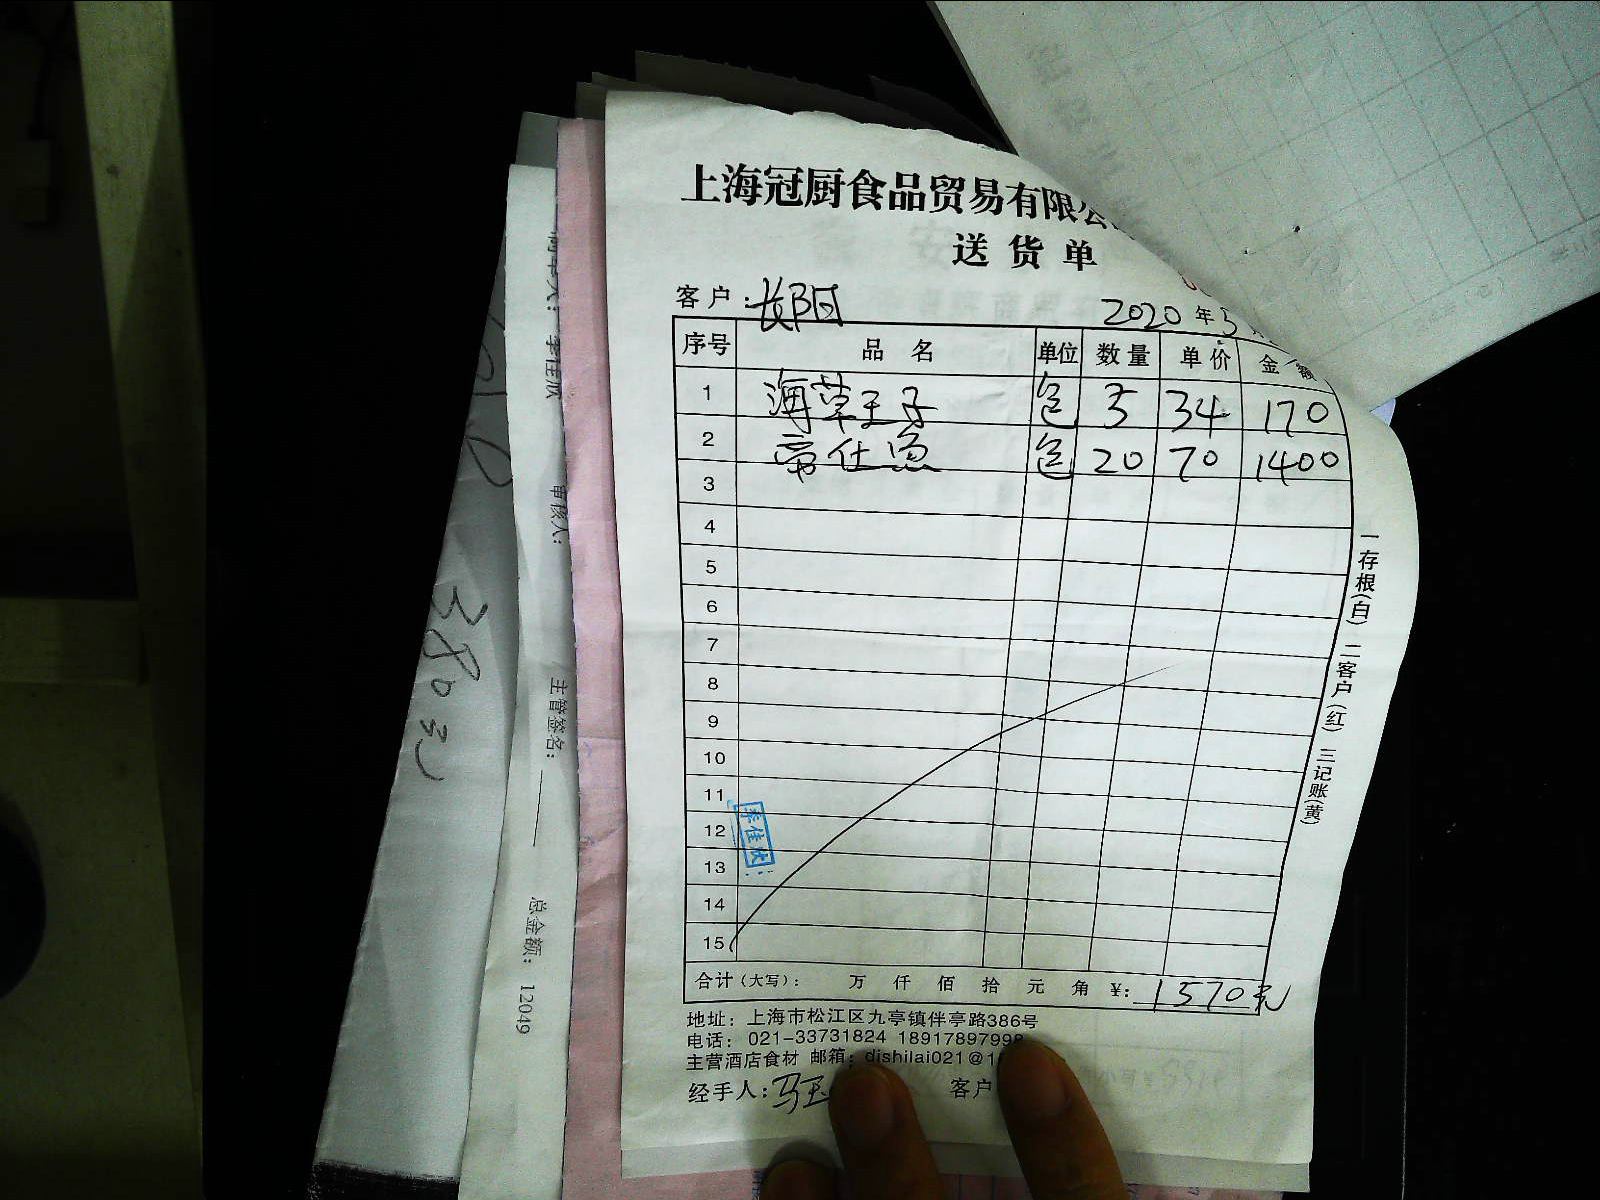 上海冠厨食品贸易有限公
送货单
客户：长阳 2020年5
序号 品名 单位 数量 单价 金额
1 海草王子 包 5 34 170
2 帝仕鱼 包 20 70 1400
3
4
5
6
7
8
9
10
11
12
13
14
15
李佳欣
合计（大写）： 万 仟 佰 拾 元 角 ¥：1570元
地址：上海市松江区九亭镇伴亭路386号
电话：021-33731824 1891789799
主营酒店食材 邮箱：dishilai021@1
经手人：马玉 客户
一存根（白） 二客户（红） 三记账（黄）
李佳欣
审核人：
主管签名：
总金额：12049
380元